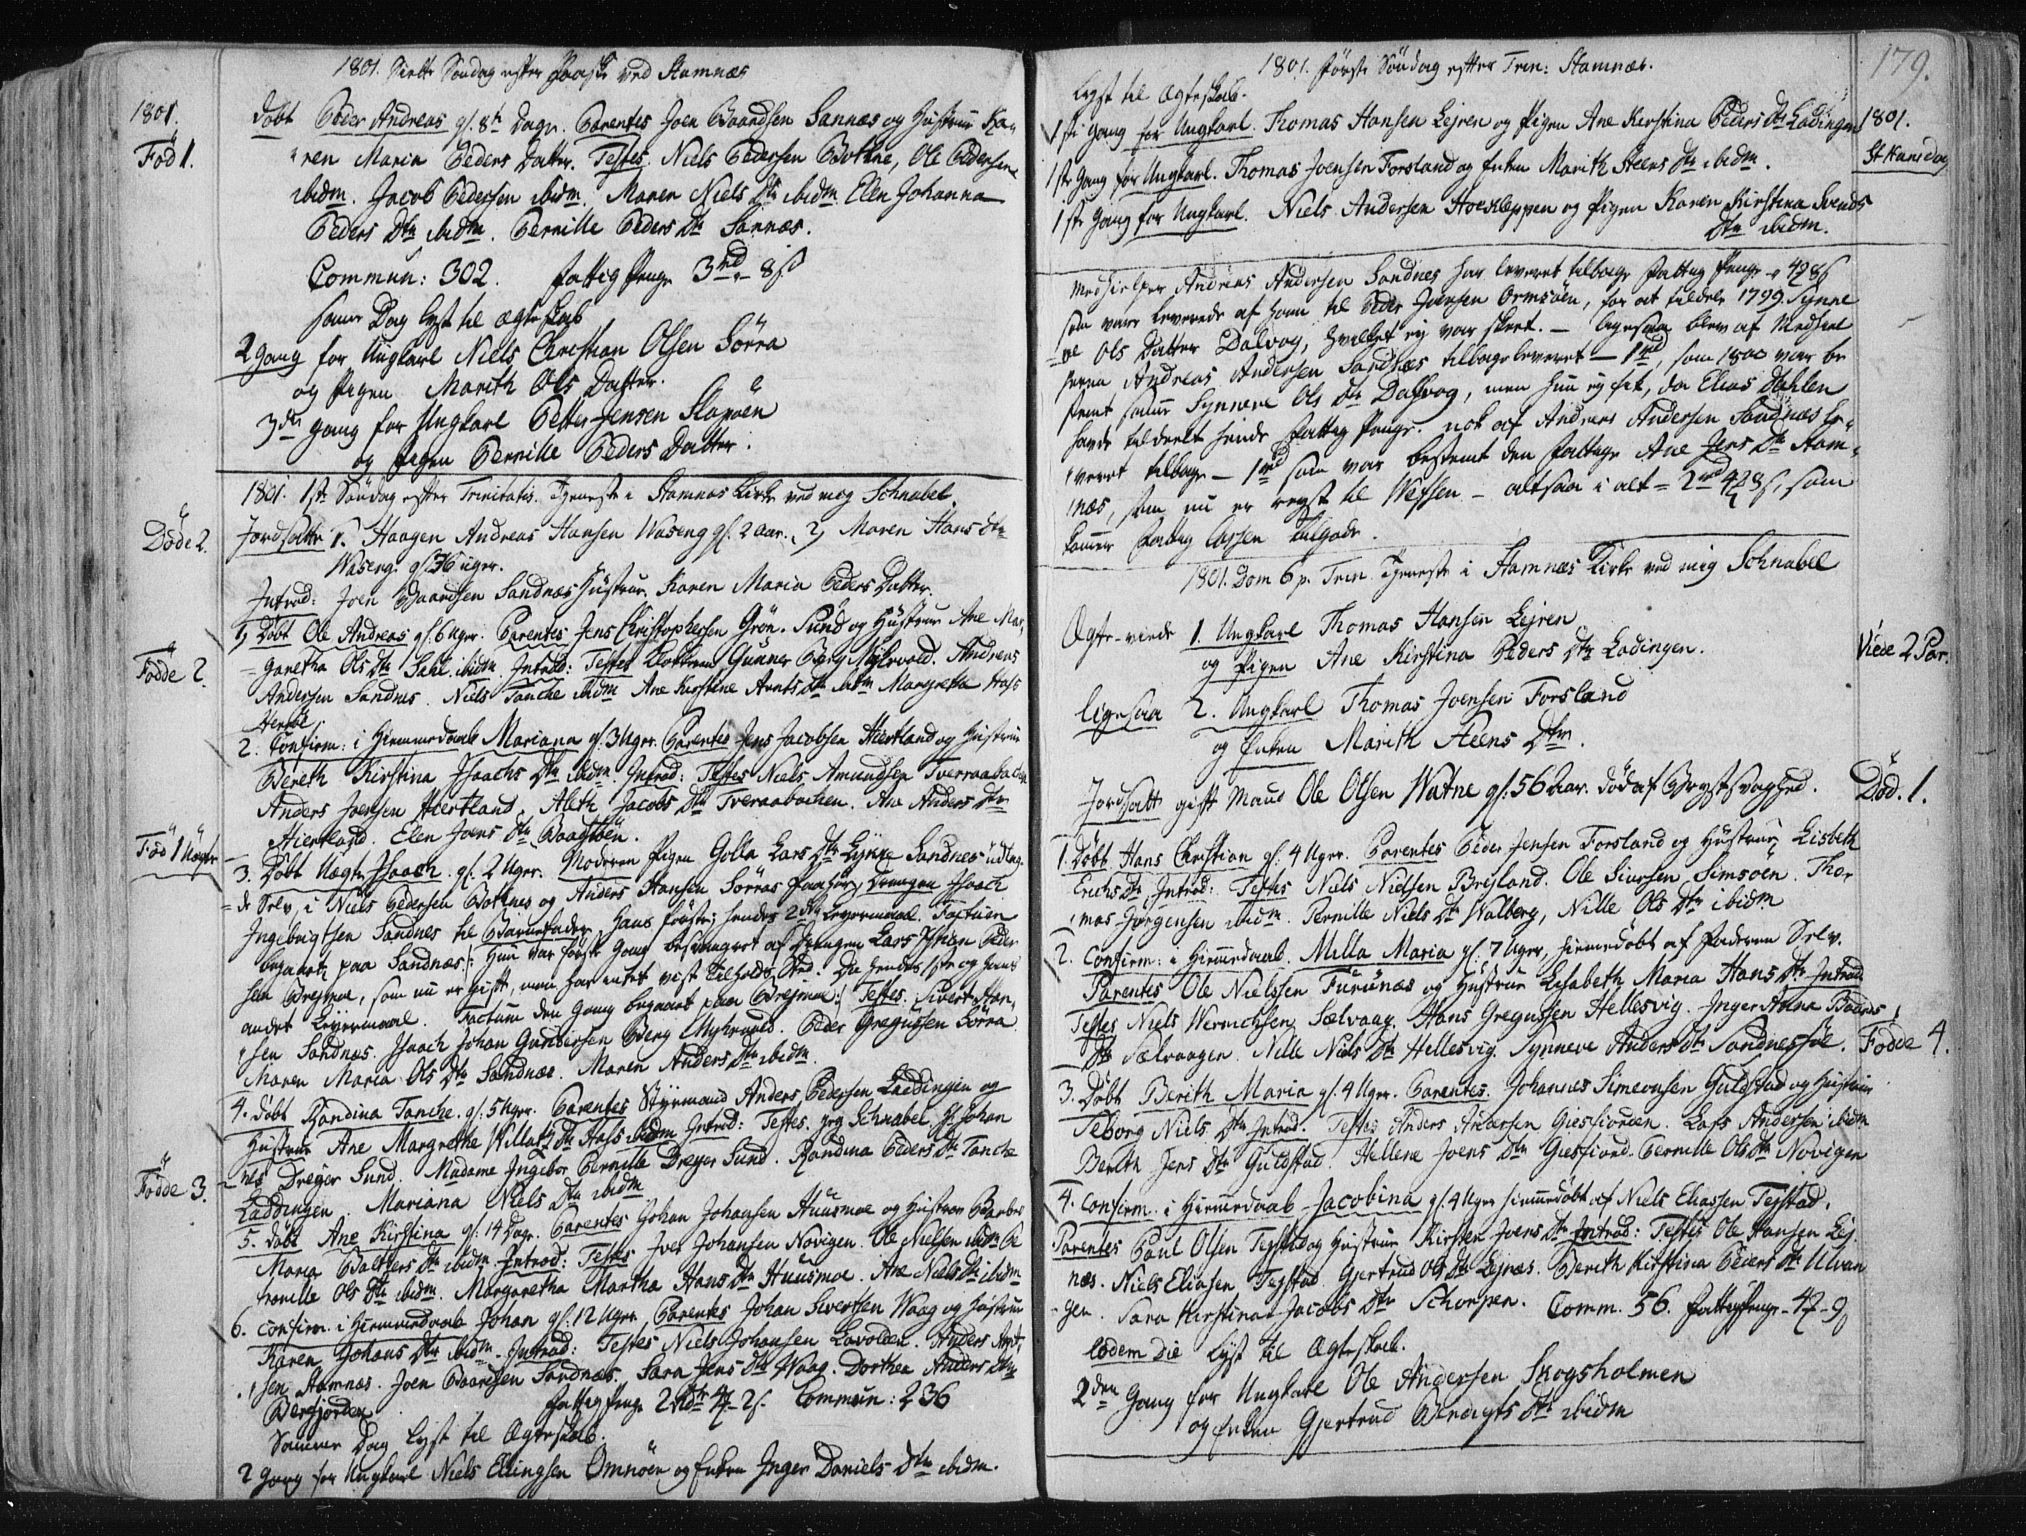 1801. Siette Søndag efter Paaske ved Stamnæs
1801.
Død 1.
døbt Peder Andreas gl. 8te Dage. Parentes Joen Baardsen Sannæs og Hustrue Ka-
ren Maria Peders Datter. Testes Niels Pedersen Botne, Ole Pedersen
ibidm. Jacob Pedersen ibidm. Maren Niels Dtr ibidm. Elen Johanna
Peders Dtr ibidm. Pernille Peders Dtr Sannæs.
Commun: 302. fattig Penge 3 rd 8 s
samme Dag lyst til ægteskab
2 gang for Ungkarl Niels Christian Olsen Sørra
og Pigen Marith Ols Datter.
3de gang for Ungkarl Petter Jensen Slapøen
og Pigen Pernille Peders Datter.
1801. 1ste Søndag efter Trinitatis. Tjeneste i Stamnæs Kirke ved mig Schnabel.
Døde 2.
Jordsatte 1. Haagen Andreas Hansen Waseng gl. 2 aar. 2, Maren Hans dtr
Waseng. gl. 36 uger.
Introd: Joen Baardsen Sandnæs Hustrue Karen Maria Peders Datter.
1, Døbt Ole Andreas gl. 6 Uger. Parentes Jens Christophersen Grøn. Sund og Hustrue Ane Mar-
Fødde 2.
garetha Ols Dtr ibidm. Introd: Testes Gunner Berg Myhrvold. Andreas
Andersen Sandnes. Niels Tanche ibidm Ane Kirstine Arnts Dtr ibidm Margretha Hass
2. Confirm: i Hiemmedaab Mariana gl. 3 Uger. Parentes Jens Jacobsen Hiertland og Hustrue
Bereth Kirstina Isachs Dtr ibidm. Introd: Testes Niels Amundsen Tverraabachen
Anders Joensen Hiertland, Aleth Jacobs Dtr Tveraabachen. Ane Anders Dtr
Hiertland. Elen Joens Dtr
Fød 1 Uægte
3. Døbt Uægte Isaach. gl. 2 Uger. Moderen Pigen Golla Lars Dtr Sandnes udlag-
de Selv i Niels Pedersen Botnes og Anders Hansen Sørras paahør, Drengen Isaach
Ingebrigtsen Sandnes til Barnefader. Hans første; hendes 2det Leyermaal.
begaaet paa Sandnæs. /: Hun var første Gang besvangret af Drengen Lars Peder-
sen Brejma, som nu er gift, men har intet vist tilholds Sted. Da hendes 1ste og hans
andet Leyermaal. Factum den Gang begaaet paa Brejma :/ Testes. Sivert Han-
sen Sandnæs. Isaach Johan Gundersen Berg Myhrvold. Peder Gregussen Sørra
Maren Maria Ols Dtr Sandnæs. Maren Anders Dtr ibidm.
4. Døbt Randina Tanche. gl. 5 Uger. Parentes Styrmand Anders Pedersen Laddingen og
Hustrue Ane Margrethe Dtr Hass ibidm Introd: Testes. Schnabel. Johan
Dreyer Sund. Madame Ingebor Pernille Dreyer Sund. Randina Peders Dtr Tanche
Fødde 3.
Laddingen. Mariana Niels Dtr ibidm
5. Døbt Ane Kirstina gl: 14 Dage. Parentes Johan Johansen Huusmoe og Hustrue Barbro
Maria Balthers Dtr ibidm. Introd: Testes Iver Johansen Novigen. Ole Nielsen ibidm Pe
tronille Ols Dtr ibidm. Margaretha Martha Hans Dtr Huusmoe. Ane Niels Dtr ibidm
6. Confirm. i Hiemmedaab Johan gl. 12 Uger, Parentes Johan Sivertsen Waag og Hustrue
Karen Johans Dtr ibidm. Introd: Testes Niels Johansen Lavolden. Anders And-
sen Stamnæs. Joen Baardsen Sandnæs. Sara Jens Dtr Waag. Dorthea Anders Dtr
Berfjorden.
fattig Penge 2 Rdr 4 - 2 s. Commun: 236
Samme Dag Lyst til Ægteskab.
2 Gang for Ungkarl Niels Ellingsen Omnøen og Enken Inger Daniels Dtr ibidm.
179.
1801. første Søndag efter Trin: Stamnæs.
Lyst til Ægteskab.
1ste gang for Ungkarl. Thomas Hansen Lejren og Pigen Ane Kirstina Peders Dtr Ladingen
1801.
St Hansdag
1ste Gang for Ungkarl. Thomas Joensen Forsland og Enken Marith Steens Dtr ibidm.
1ste Gang for Ungkarl. Niels Andersen Hoeskleppen og Pigen Karen Kirstina Svends
Dtr ibidm.
Medhielper Andreas Andersen Sandnes har leveret tilbage fattig Penge 4 & 8 s
som vare leverede af ham til Peder Joensen Ormsøen, for at tildele 1799. Synne
ve Ols Datter Dalvog, hvilket ej var skeet. - ligesaa blev af Medhiel
peren Andreas Andersen Sandnæs tilbageleveret - 1 rd, som 1800 var be
stemt samme Synneve Ols Dtr Dalvog, men hun ej fik, da Elias Dahlen
havde tildeelt hende fattig Penge. nok af Andreas Andersen Sandnæs le-
veret tilbage - 1 rd som var bestemt den fattige Ane Jens Dtr Stam-
næs, som nu er rejst til Wefsen - altsaa i alt = 2 rd 4 & 8 s, som
kommer fattig Cassen tilgode.
1801. Dom 6 p. Trin. Tjeneste i Stamnæs Kirke ved mig Schnabel
Ægte-viede 1. Ungkarl Thomas Hansen Lejren
og Pigen Ane Kirstina Peders Dtr Ladingen.
Viede 2 Par.
ligesaa 2. Ungkarl Thomas Joensen Forsland
og Enken Marith Steens Dtr.
Jordsatt gift Mand Ole Olsen Watne gl: 56 Aar. død af Brystsvaghed.
Død. 1.
1. Døbt Hans Christian gl: 4 Uger. Parentes Peder Jensen Forsland og Hustrue Lisbeth
Erichs Dtr. Introd: Testes Niels Nielsen Brejland. Ole Siursen Simsøen. Tho-
mas Jørgensen ibidm. Pernille Niels Dtr Walberg, Nille Ols Dtr ibidm
2. Confirm: i Hiemmedaab. Milla Maria gl. 7 Uger, hiemedøbt af Faderen Selv.
Parentes Ole Nielssen Furunæs og Hustrue Elisabeth Maria Hans Dtr Introd
Testes Niels Wernichsen Sælvaag. Hans Gregussen Hellesvig. Inger Anna Baards
Dtr Sælvaagen. Nille Niels Dtr Hellesvig. Synneve Anders Dtr Sandnessøe.
Fødde 4.
3. Døbt Berith Maria gl. 4 Uger. Parentes. Johannes Simeonsen Guldstad og Hustrue
Seborg Niels Dtr Introd. Testes Anders Andersen Giesfiorden. Lars Andersen ibidm
Berith Jens Dtr Guldstad. Hellene Joens Dtr Giesfiord. Pernille Ols Dtr Novigen
4. Confirm. i Hiemmedaab Jacobina gl. 4 Uger hiemmedøbt af Niels Eliassen Tejstad.
Parentes Paul Olsen Tejstad og Hustrue Kirsten Joens Dtr Introd: Testes Ole Hansen Lej-
næs. Niels Eliasen Tejstad. Gjertrud Ols Dtr Lejnæs. Berith Kirstina Peders Dtr Ulvan
gen. Sara Kirstina Jacobs Dtr Schorpen. Comm. 56. fattigpenge - 4 - 9
Eodem die lyst til Ægteskab.
2den Gang for Ungkarl Ole Andersen Skogsholmen
og Enken Gjertrud Bendigts Dtr ibidm